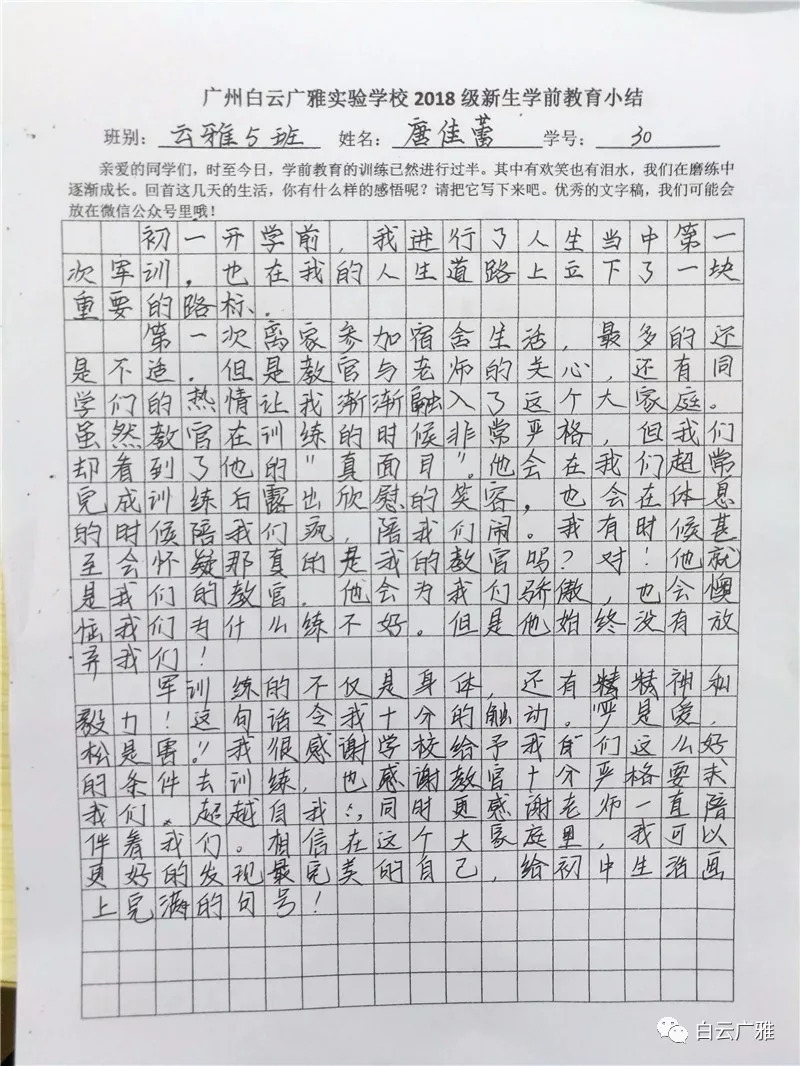 广州白云广雅实验学校 2018 级新生学前教育小结
班别：云雅5班 姓名：唐佳蕾 学号：30
亲爱的同学们，时至今日，学前教育的训练已然进行过半。其中有欢笑也有泪水，我们在磨练中
逐渐成长。回首这几天的生活，你有什么样的感悟呢？请把它写下来吧。优秀的文字稿，我们可能会
放在微信公众号里哦！
初一开学前，我进行了人生当中第一
次军训，也在我的人生道路上立下了一块
重要的路标。
第一次离家参加宿舍生活，最多的还
是不适，但是教官与老师的关心，还有同
学们的热情让我渐渐融入了这个大家庭。
虽然教官在训练的时候非常严格，但我们
却看到了他的"真面目"。他会在我们超常
完成训练后露出欣慰的笑容，也会在休息
的时候陪我们疯，陪我们闹。我有时候甚
至会怀疑那真的是我的教官吗？对！他就
是我们的教官，他会为我们骄傲，也会懊
恼我们为什么练不好。但是他始终没有放
弃我们！
军训练的不仅是身体，还有精神和
毅力！这句话令我十分的触动。严是爱，
松是害！！我很感谢学校给予我们这么好
的条件去训练，也感谢教官十分严格要求
我们，超越自我，同时更感谢老师一直陪
伴着我们。相信在这个大家庭里，我可以
更好的发现最完美的自己，给初中生活画
上完满的句号！
白云广雅